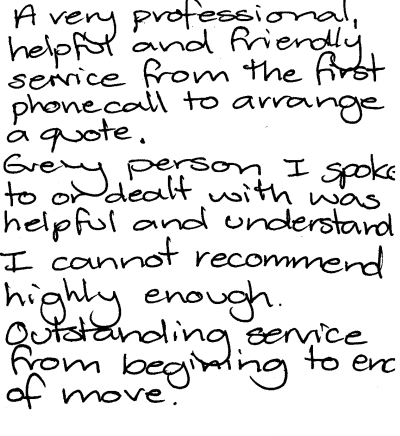 A very professional,
helpful and friendly
service from the first
phonecall to arrange
a quote.
Every person I spoke
to or dealt with was
helpful and understand
I cannot recommend
highly enough.
Outstanding service
from begining to end
of move.